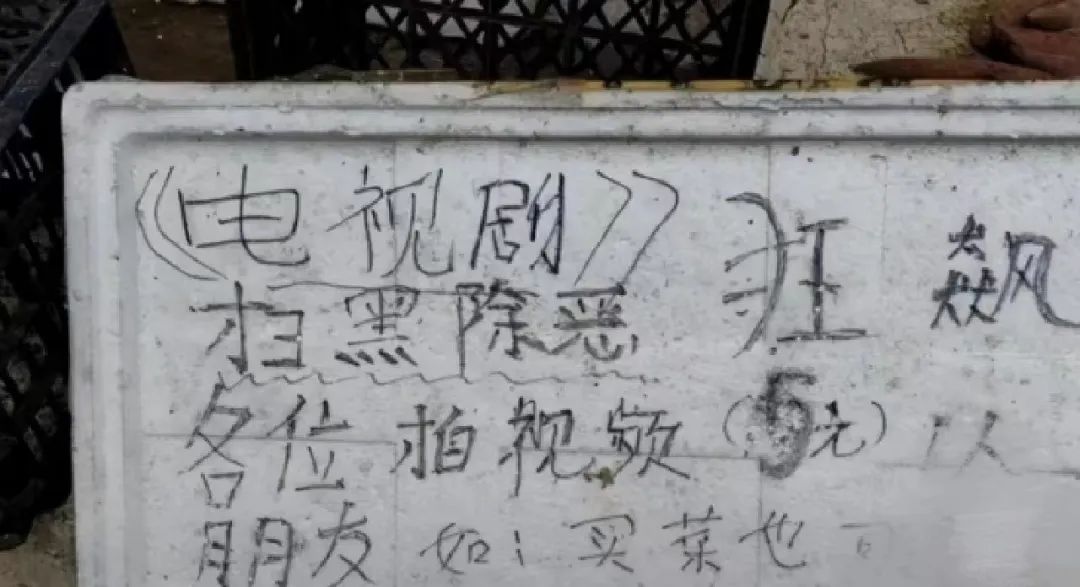 《电视剧》 狂飙
扫黑除恶
各位 拍视频(5元) 以
朋友 如:买菜也